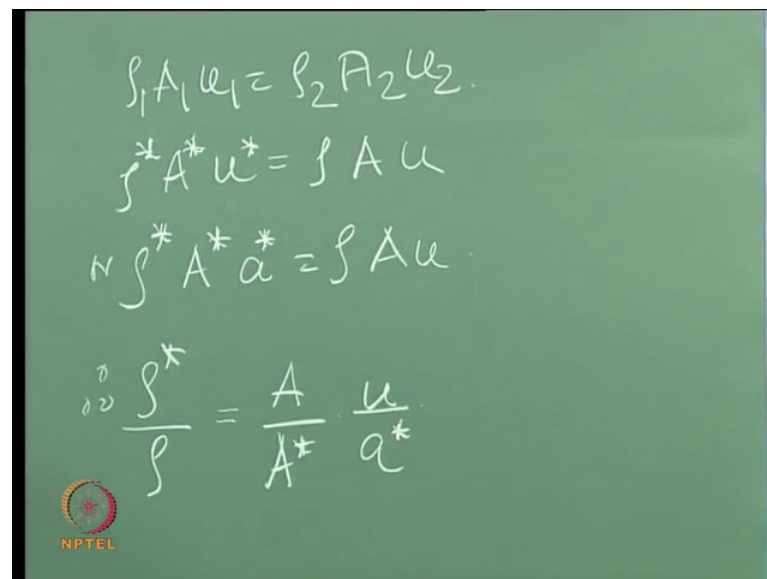 ρ₁A₁u₁ = ρ₂A₂u₂.
ρ*A*u* = ρAu
ρ*A*a* = ρAu.
∴ ρ*/ρ = A/A* · u/a*
NPTEL